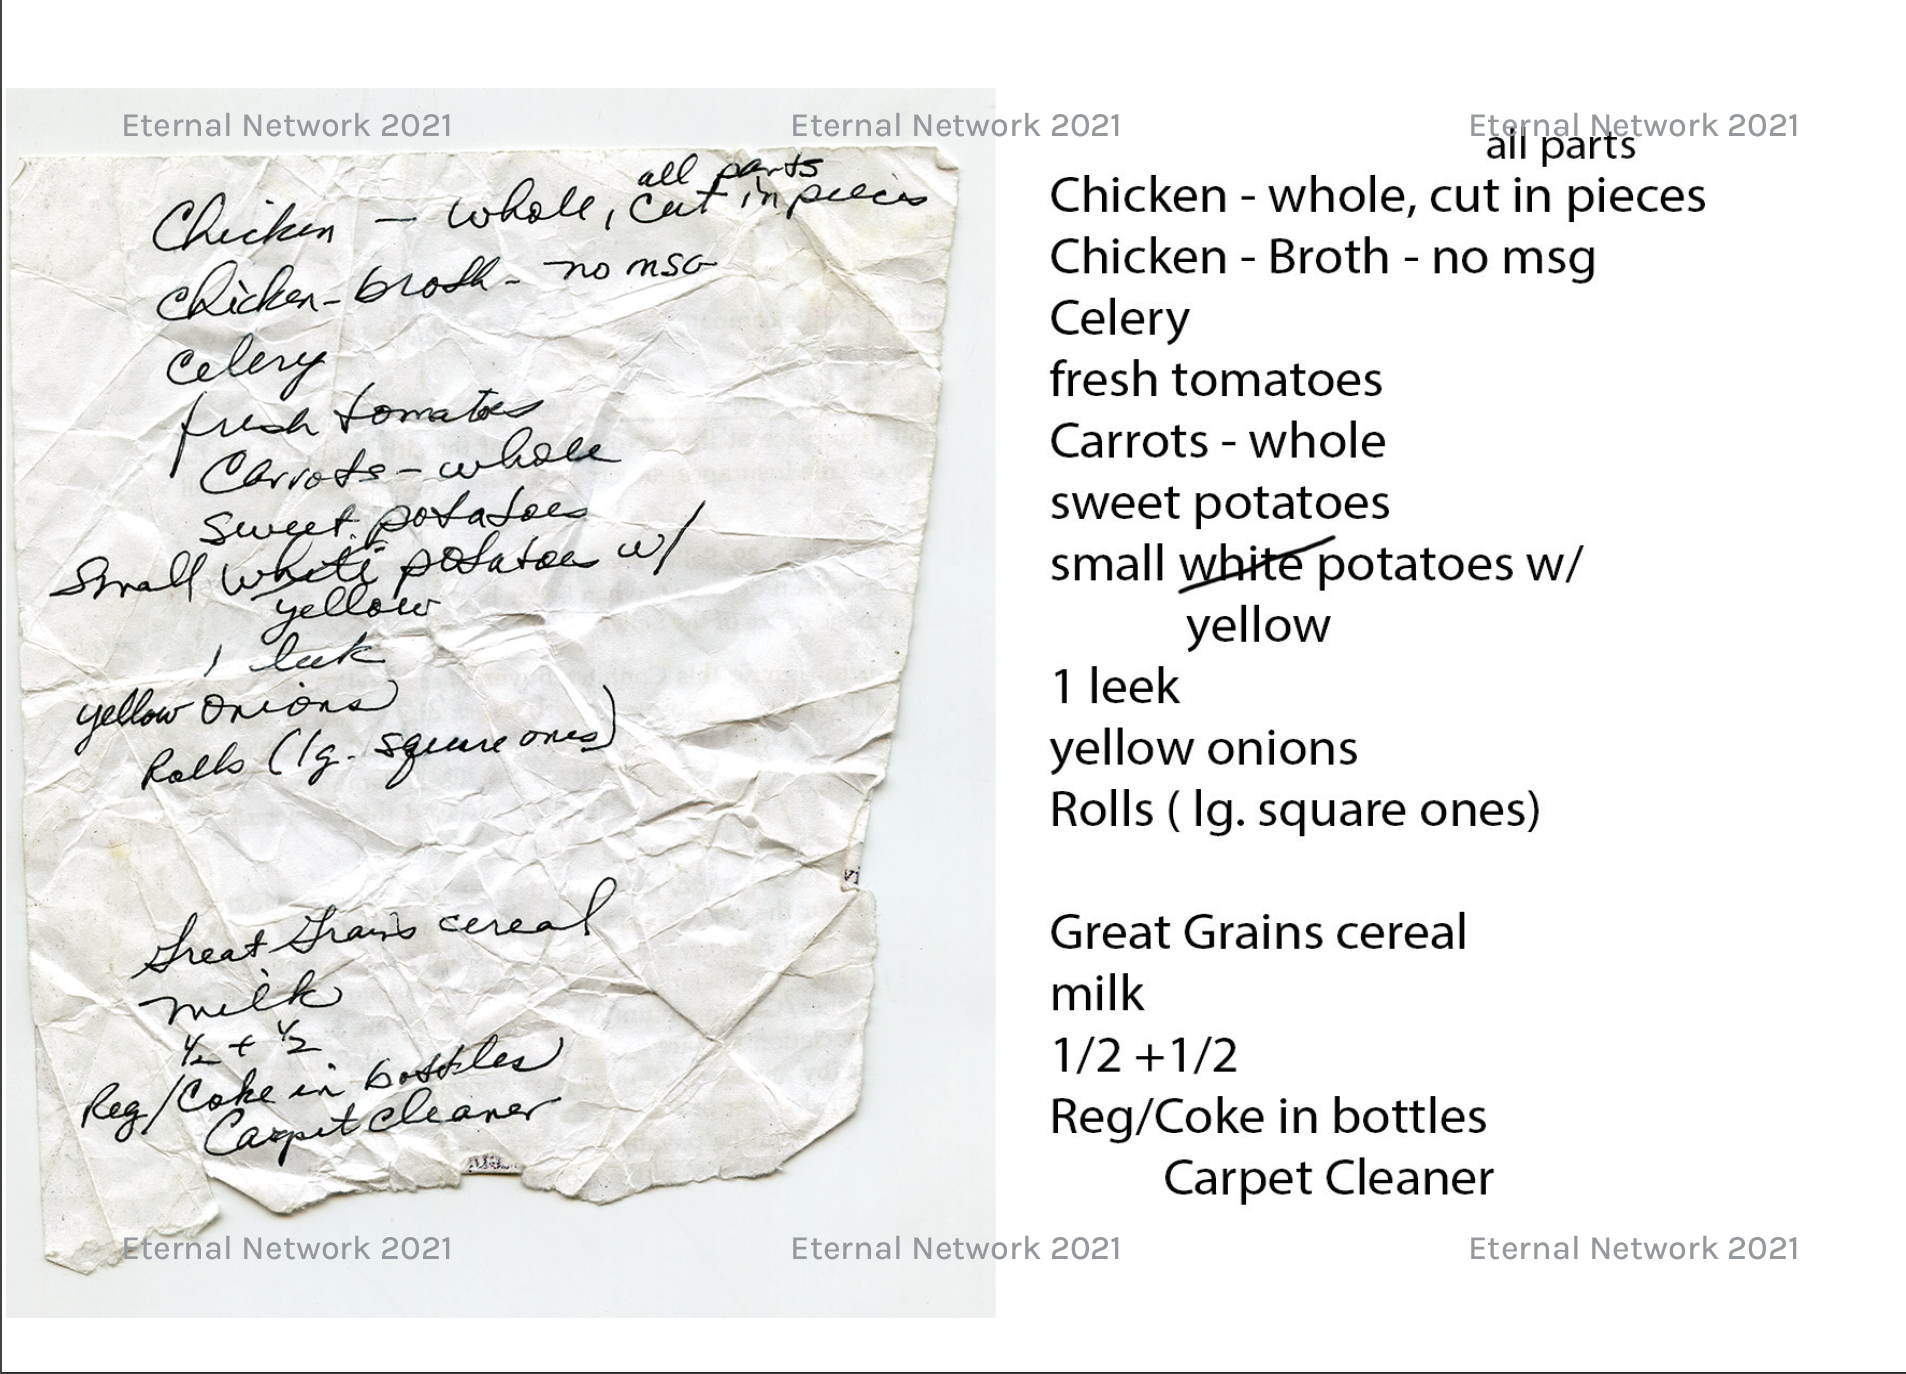 Eternal Network 2021 Eternal Network 2021 Eternal Network 2021
all parts
Chicken - whole, cut in pieces
Chicken - broth - no MSG
Celery
fresh tomatoes
Carrots - whole
sweet potatoes
Small white potatoes w/
yellow
1 leek
yellow onions
Rolls (lg. square ones)
Great Grains cereal
milk
1/2 + 1/2
Reg/Coke in bottles
Carpet cleaner
all parts
Chicken - whole, cut in pieces
Chicken - Broth - no msg
Celery
fresh tomatoes
Carrots - whole
sweet potatoes
small white potatoes w/
yellow
1 leek
yellow onions
Rolls ( lg. square ones)
Great Grains cereal
milk
1/2 +1/2
Reg/Coke in bottles
Carpet Cleaner
Eternal Network 2021 Eternal Network 2021 Eternal Network 2021